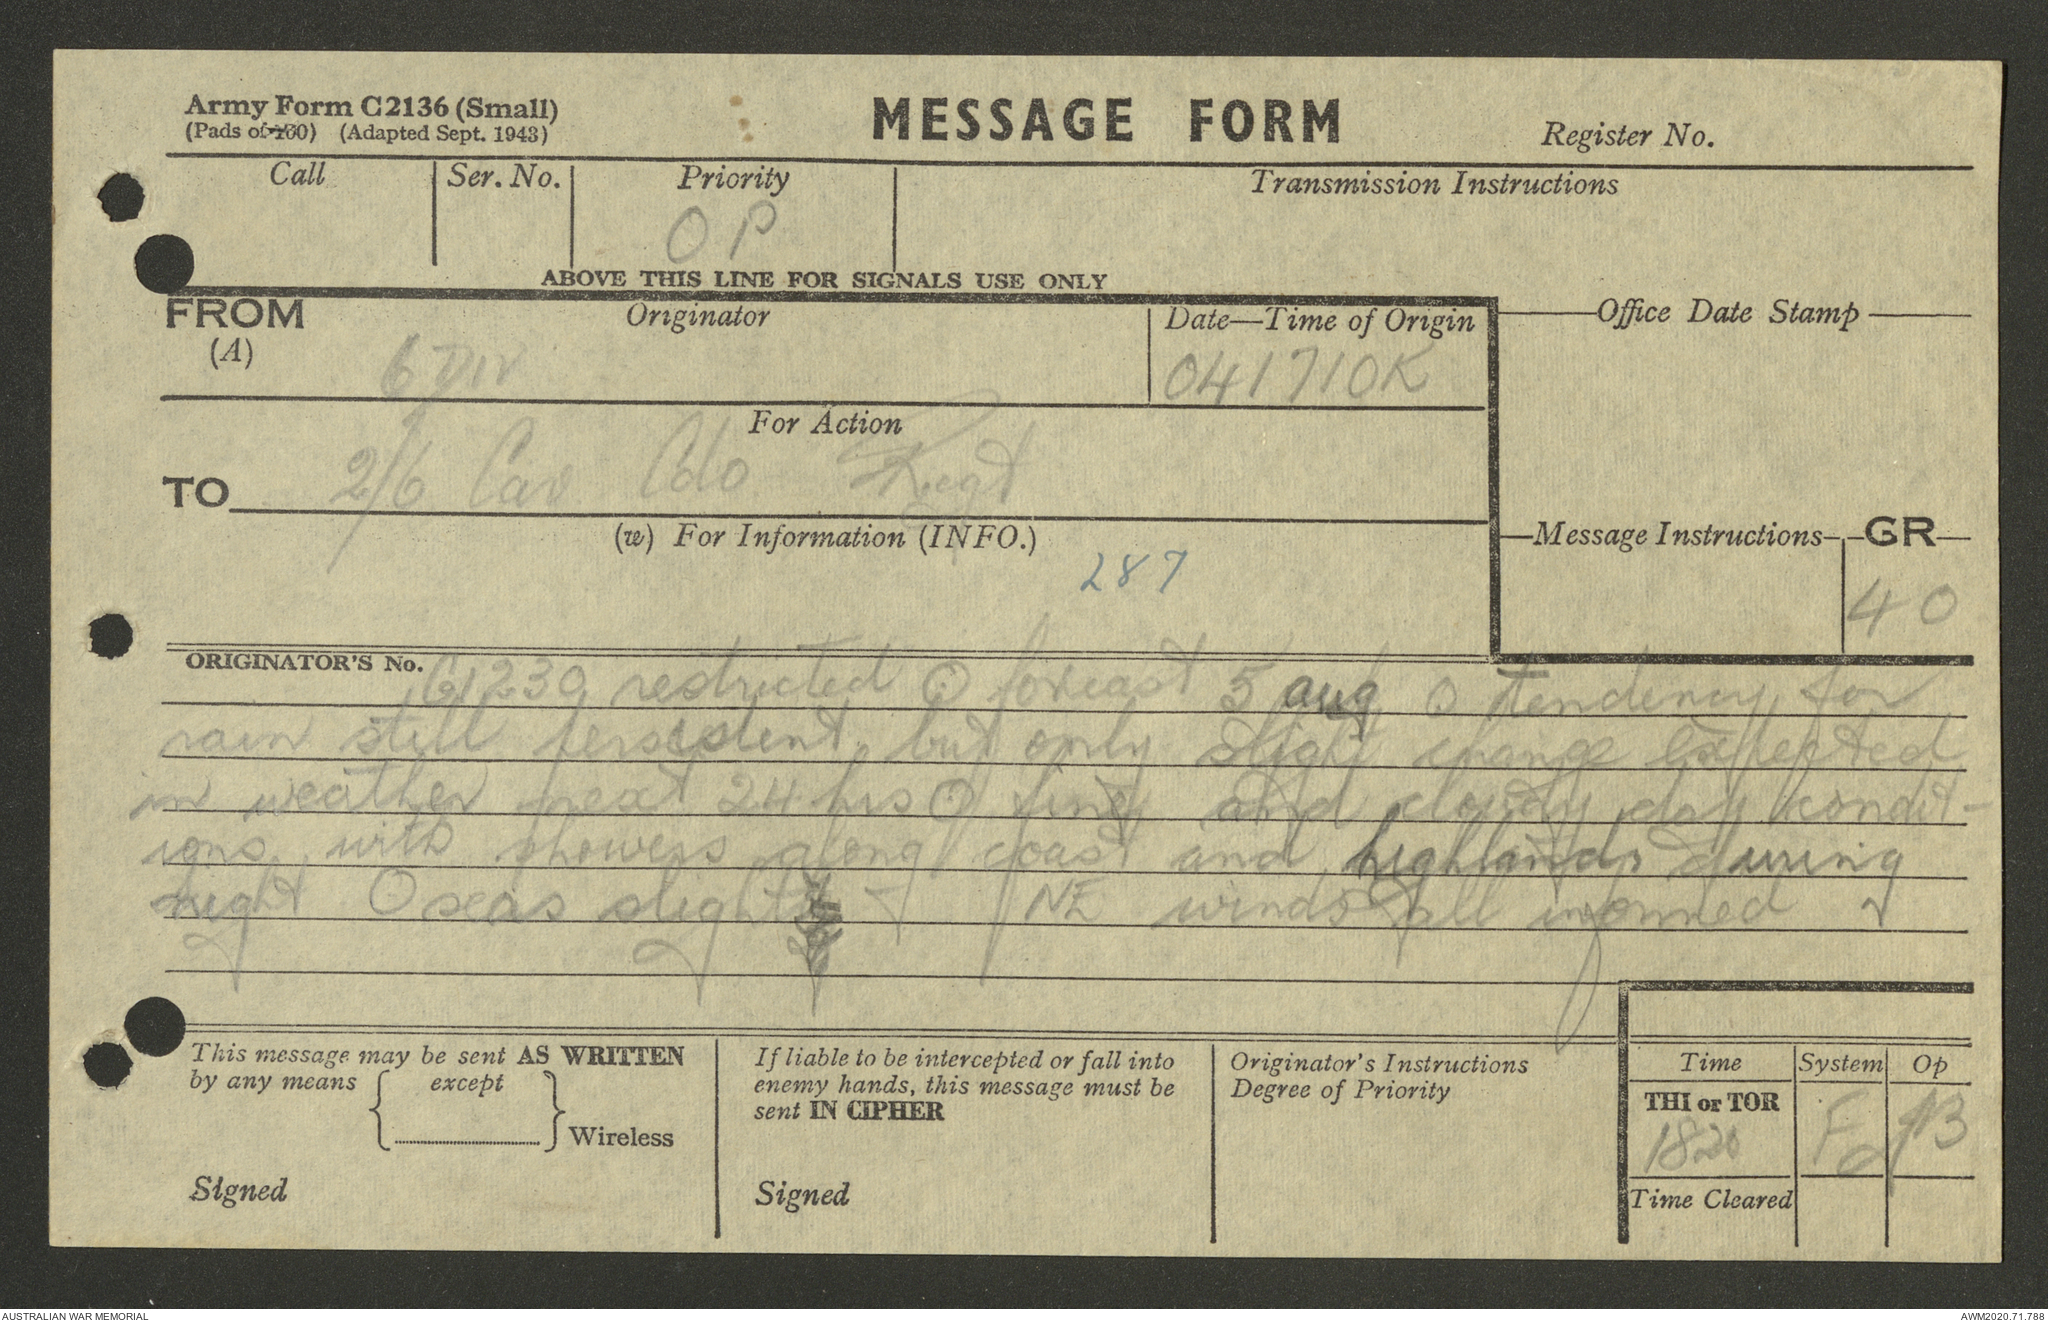 Army Form C2136 (Small)
(Pads of 100) (Adapted Sept. 1943)
MESSAGE FORM
Register No.
Call Ser. No. Priority Transmission Instructions
OP
ABOVE THIS LINE FOR SIGNALS USE ONLY
FROM
(A)
Originator
Date—Time of Origin
Office Date Stamp
6 DIV
041710K
For Action
TO 2/6 Cav Cdo Regt
(w) For Information (INFO.)
Message Instructions GR
287
40
ORIGINATOR'S No.
G1230 restricted O forecast 5 aug O tendency for
rain still persistent but only slight change expected
in weather next 24 hrs O fine and cloudy day condit-
ions with showers along coast and highlands during
night O seas slight - NE winds all informed
This message may be sent AS WRITTEN
by any means { except } Wireless
Signed
If liable to be intercepted or fall into
enemy hands, this message must be
sent IN CIPHER
Signed
Originator's Instructions
Degree of Priority
Time System Op
THI or TOR
1820
Time Cleared
AUSTRALIAN WAR MEMORIAL
AWM2020.71.788